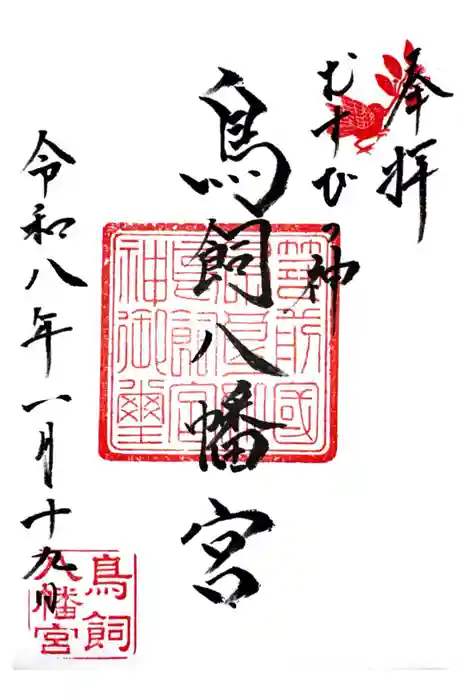 奉拝
むすびの神
鳥飼八幡宮
令和八年一月十九日
筑前國
鳥飼
八幡宮